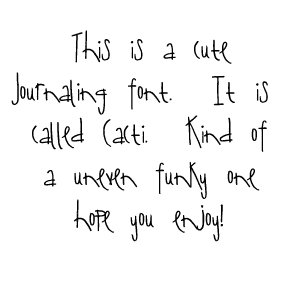 This is a cute
Journaling font. It is
called Cacti. Kind of
a uneven funky one
hope you enjoy!